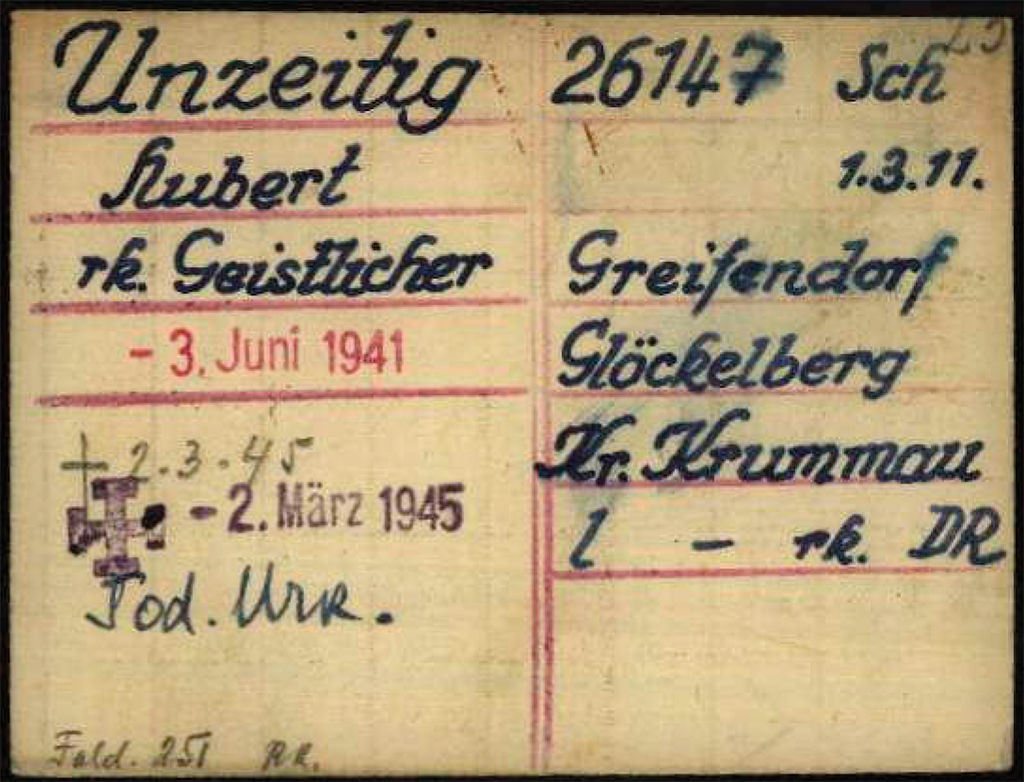 Unzeitig
Hubert
rk. Geistlicher
- 3. Juni 1941
2.3.45
- 2. März 1945
Tod. Urk.
26147 Sch
1.3.11.
Greifendorf
Glöckelberg
Kr. Krummau
l - rk. DR